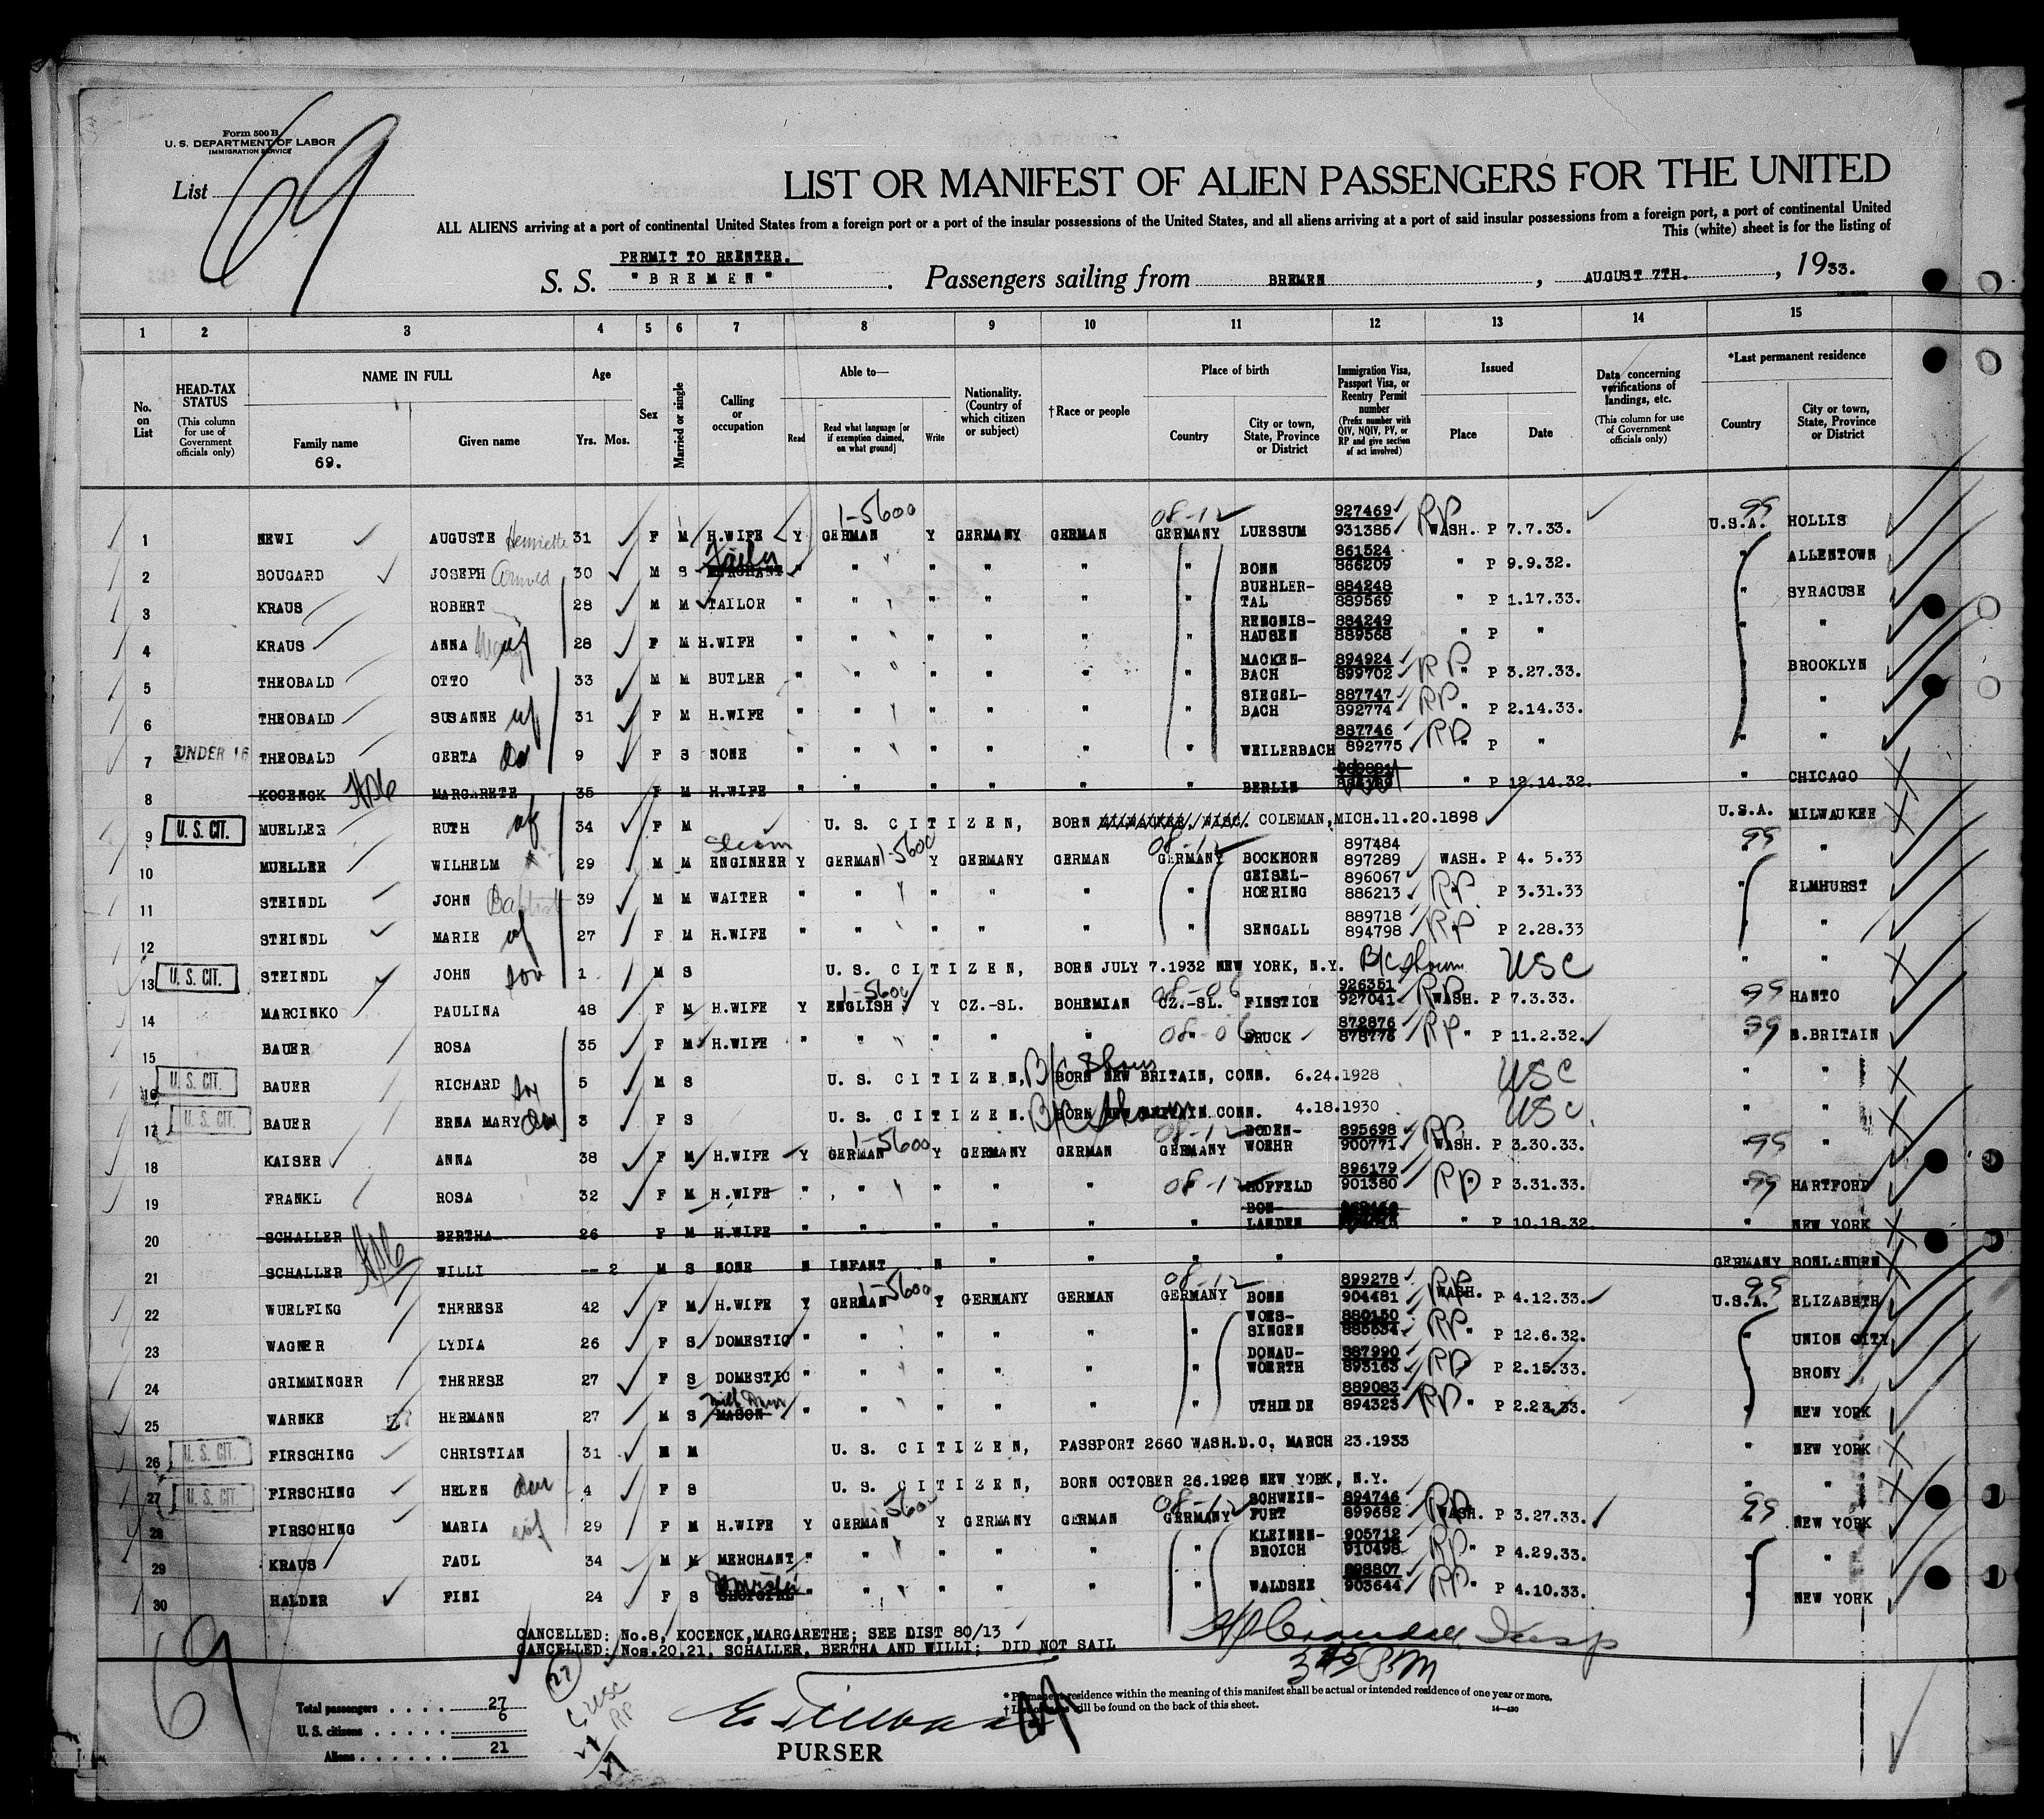 Form 500 B
U. S. DEPARTMENT OF LABOR
IMMIGRATION SERVICE
List 69
LIST OR MANIFEST OF ALIEN PASSENGERS FOR THE UNITED
ALL ALIENS arriving at a port of continental United States from a foreign port or a port of the insular possessions of the United States, and all aliens arriving at a port of said insular possessions from a foreign port, a port of continental United
This (white) sheet is for the listing of
PERMIT TO REENTER.
S. S. "BREMEN". Passengers sailing from BREMEN, AUGUST 7TH., 1933.
1 2 3 4 5 6 7 8 9 10 11 12 13 14 15
No. on List
HEAD-TAX STATUS (This column for use of Government officials only)
NAME IN FULL
Family name
69.
Given name
Age
Yrs. Mos.
Sex
Married or single
Calling or occupation
Able to—
Read
Read what language [or if exemption claimed, on what ground]
Write
Nationality. (Country of which citizen or subject)
†Race or people
Place of birth
Country
City or town, State, Province or District
Immigration Visa, Passport Visa, or Reentry Permit number (Prefix number with QIV, NQIV, PV, or RP and give section of act involved)
Issued
Place
Date
Data concerning verifications of landings, etc. (This column for use of Government officials only)
*Last permanent residence
Country
City or town, State, Province or District
1 NEWI AUGUSTE Henriette 31 F M H.WIFE Y GERMAN 1-5600 Y GERMANY GERMAN 08-12 GERMANY LUESSUM 927469 931385 RP WASH. P 7.7.33. 99 U.S.A. HOLLIS
2 BOUGARD JOSEPH 30 M S Tailor " " " " " " BONN 861524 866209 " P 9.9.32. " ALLENTOWN
3 KRAUS ROBERT 28 M M TAILOR " " " " " " BUEHLER-TAL 884248 889569 " P 1.17.33. " SYRACUSE
4 KRAUS ANNA wf 28 F M H.WIFE " " " " " " RENGNIS-HAUSEN 884249 889568 " P " " "
5 THEOBALD OTTO 33 M M BUTLER " " " " " " MACKEN-BACH 894924 899702 RP " P 3.27.33. " BROOKLYN
6 THEOBALD SUSANNE wf 31 F M H.WIFE " " " " " " SIEGEL-BACH 887747 892774 RP " P 2.14.33. " "
7 UNDER 16 THEOBALD GERTA da 9 F S NONE " " " " " " WEILERBACH 887746 892775 RP " P " " "
8 KOCENCK MARGARETE 35 F M H.WIFE " " " " " " BERLIN " P 12.14.32. " CHICAGO
9 U. S. CIT. MUELLER RUTH wf 34 F M U. S. CITIZEN, BORN MILWAUKEE, WISC. COLEMAN, MICH. 11.20.1898 U.S.A. MILWAUKEE
10 MUELLER WILHELM 29 M M Steam ENGINEER Y GERMAN 1-5600 Y GERMANY GERMAN 08-12 GERMANY BOCKHORN 897484 897289 WASH. P 4. 5.33 99 " "
11 STEINDL JOHN Baptist 39 M M WAITER " " " " " " GEISEL-HOERING 896067 886213 RP " P 3.31.33 " ELMHURST
12 STEINDL MARIE wf 27 F M H.WIFE " " " " " " SENGALL 889718 894798 RP " P 2.28.33 " "
13 U. S. CIT. STEINDL JOHN son 1 M S U. S. CITIZEN, BORN JULY 7.1932 NEW YORK, N.Y. B/C shown USC " "
14 MARCINKO PAULINA 48 F M H.WIFE Y ENGLISH 1-5600 Y CZ.-SL. BOHEMIAN 08-06 CZ.-SL. FINSTICE 926351 927041 RP WASH. P 7.3.33. 99 HANTO
15 BAUER ROSA 35 F M H.WIFE " " " " " 08-06 BRUCK 872876 878776 RP " P 11.2.32. 99 N.BRITAIN
16 U. S. CIT. BAUER RICHARD son 5 M S U. S. CITIZEN, B/C Shown BORN NEW BRITAIN, CONN. 6.24.1928 USC " "
17 U. S. CIT. BAUER ERNA MARY dau 3 F S U. S. CITIZEN. B/C Shown BORN NEW BRITAIN CONN. 4.18.1930 USC " "
18 KAISER ANNA 38 F M H.WIFE Y GERMAN 1-5600 Y GERMANY GERMAN 08-12 GERMANY BODEN-WOEHR 895698 900771 RP WASH. P 3.30.33. 99 "
19 FRANKL ROSA 32 F M H.WIFE " " " " " 08-12 HOFFELD 896179 901380 RP " P 3.31.33. 99 HARTFORD
20 SCHALLER BERTHA 26 F M H.WIFE " " " " " " BON-LANDEN " P 10.18.32. " NEW YORK
21 SCHALLER WILLI -- 2 M S NONE N INFANT N " " " GERMANY BONLANDEN
22 WUELFING THERESE 42 F M H.WIFE Y GERMAN 1-5600 Y GERMANY GERMAN 08-12 GERMANY BONN 899278 904481 RP WASH. P 4.12.33. 99 U.S.A. ELIZABETH
23 WAGNER LYDIA 26 F S DOMESTIC " " " " " " WOES-SINGEN 880150 885534 RP " P 12.6.32. " UNION CITY
24 GRIMMINGER THERESE 27 F S DOMESTIC " " " " " " DONAU-WOERTH 887990 893163 RP " P 2.15.33. BRONY
25 WARNKE HERMANN 27 M S MASON " " " " " " UTHLEDE 889083 894323 RP " P 2.23.33. " NEW YORK
26 U. S. CIT. FIRSCHING CHRISTIAN 31 M M U. S. CITIZEN, PASSPORT 2660 WASH.D.C. MARCH 23.1933 " NEW YORK
27 U. S. CIT. FIRSCHING HELEN dau 4 F S U. S. CITIZEN, BORN OCTOBER 26.1928 NEW YORK, N.Y. " "
28 FIRSCHING MARIA wf 29 F M H.WIFE Y GERMAN 5600 Y GERMANY GERMAN 08-12 GERMANY SCHWEIN-FURT 894746 899682 RP WASH. P 3.27.33. 99 NEW YORK
29 KRAUS PAUL 34 M M MERCHANT " " " " " " KLEINEN-BROICH 905712 910498 RP " P 4.29.33. " "
30 HALDER FINI 24 F S Domestic SHOPGIRL " " " " " " WALDSEE 898807 903644 RP " P 4.10.33. " NEW YORK
CANCELLED: No.8, KOCENCK,MARGARETHE; SEE DIST 80/13
CANCELLED: Nos.20,21, SCHALLER, BERTHA AND WILLI; DID NOT SAIL
Insp
3 45 P.M
69
27
6 USC
21 RP
27
Total passengers 27
U. S. citizens 6
Aliens 21
PURSER
* Permanent residence within the meaning of this manifest shall be actual or intended residence of one year or more.
† List of races will be found on the back of this sheet.
14—430